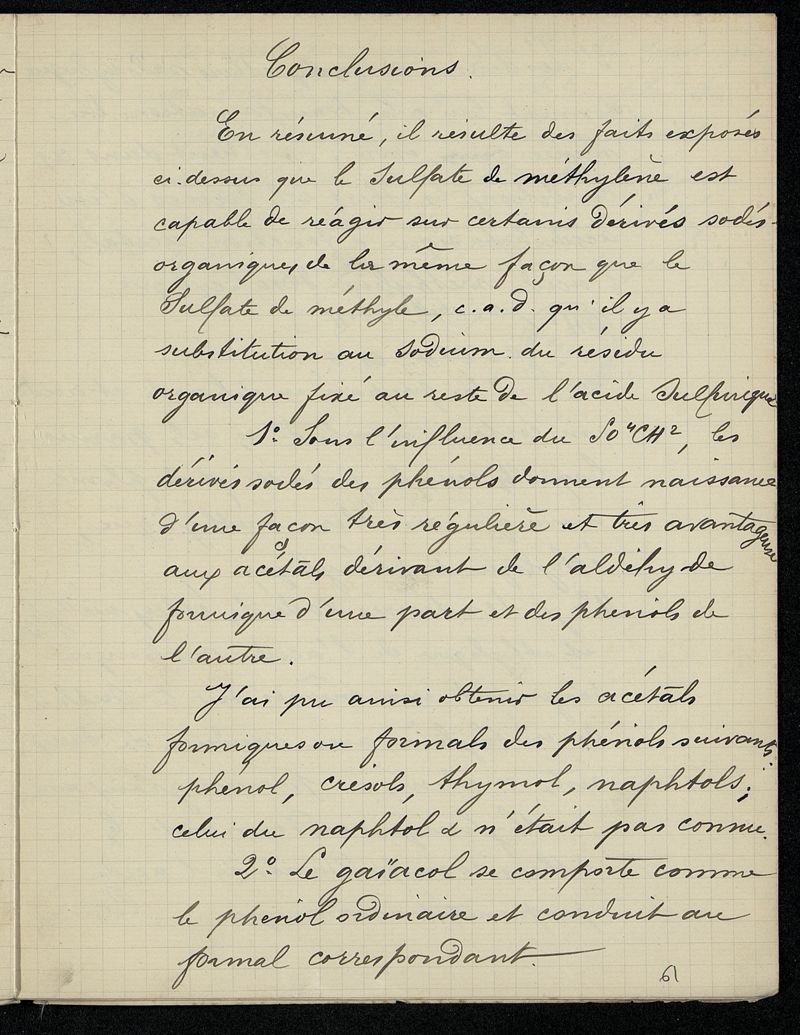 Conclusions.
En résumé, il résulte des faits exposés
ci-dessus que le Sulfate de méthylène est
capable de réagir sur certains dérivés sodés
organiques de la même façon que le
Sulfate de méthyle, c.a.d. qu'il y a
substitution au sodium du résidu
organique fixé au reste de l'acide Sulfurique
1º Sous l'influence du SO⁴CH², les
dérivés sodés des phénols donnent naissance
d'une façon très régulière et très avantageuse
aux acétals dérivant de l'aldéhyde
formique d'une part et des phénols de
l'autre.
J'ai pu ainsi obtenir les acétals
formiques ou formals des phénols suivants:
phénol, crésols, thymol, naphtols;
celui du naphtol α n'était pas connu.
2º Le gaïacol se comporte comme
le phénol ordinaire et conduit au
formal correspondant.